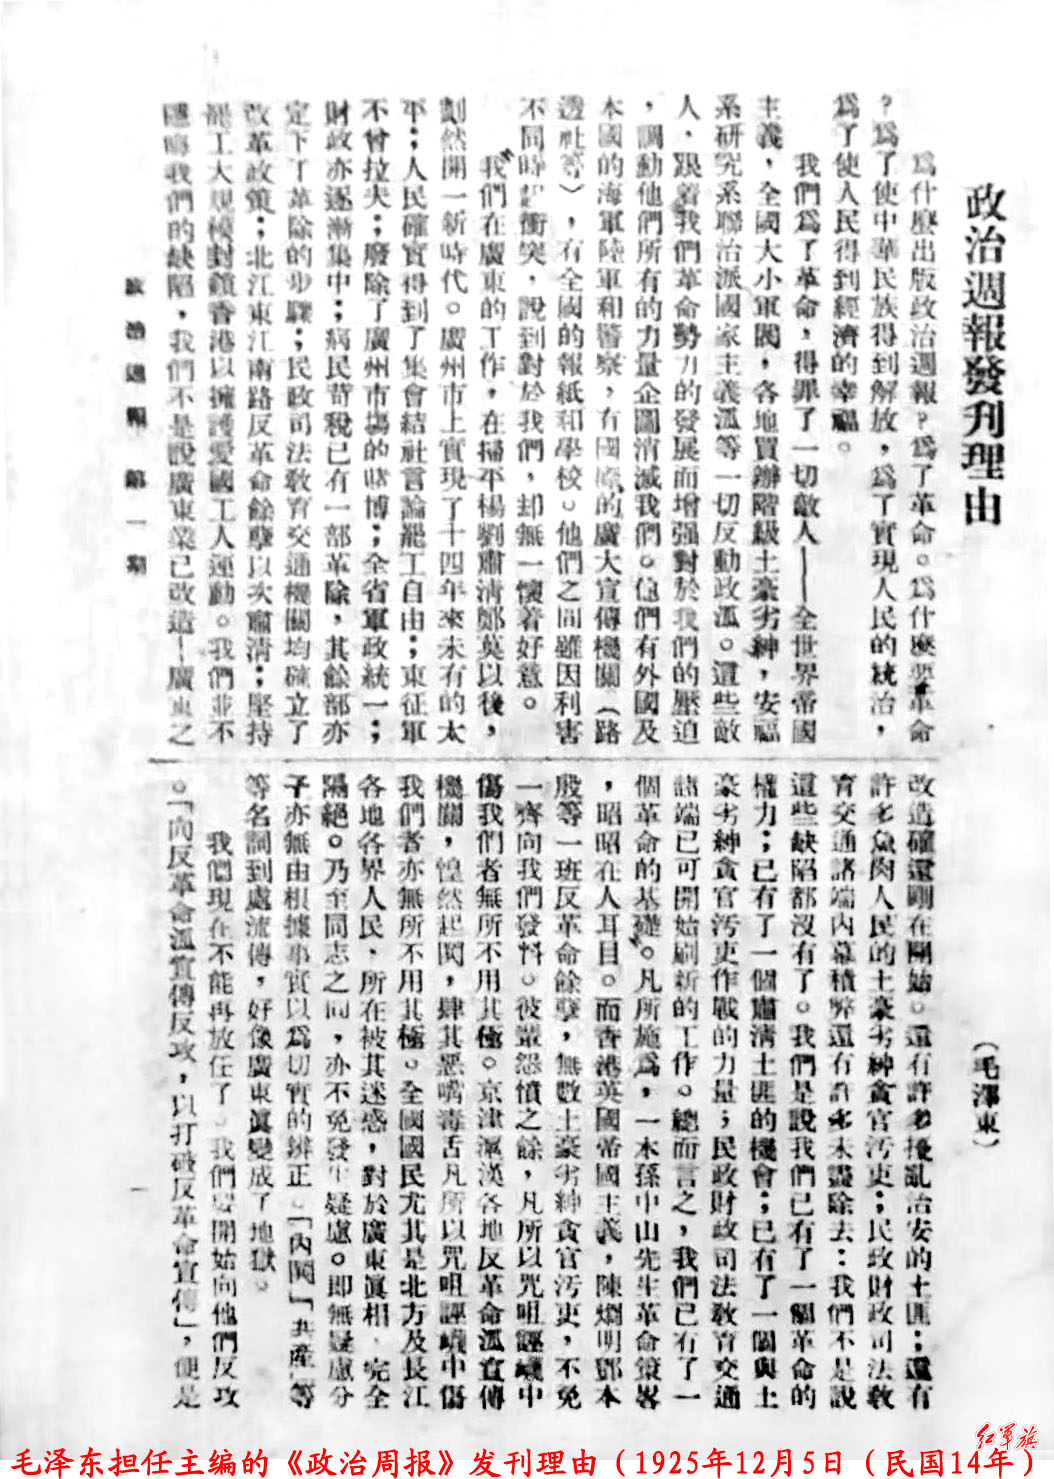 政治週報發刊理由
(毛澤東)
爲什麼出版政治週報?爲了革命。爲什麼要革命
?爲了使中華民族得到解放,爲了實現人民的統治,
爲了使人民得到經濟的幸福。
我們爲了革命,得罪了一切敵人——全世界帝國
主義,全國大小軍閥,各地買辦階級土豪劣紳,安福
系研究系聯治派國家主義派等一切反動政派。這些敵
人,跟着我們革命勢力的發展而增强對於我們的壓迫
,調動他們所有的力量企圖消滅我們。他們有外國及
本國的海軍陸軍和警察,有國際的廣大宣傳機關(路
透社等),有全國的報紙和學校。他們之間雖因利害
不同時起衝突,說到對於我們,却無一懷着好意。
我們在廣東的工作,在掃平楊劉肅清鄭莫以後,
劃然開一新時代。廣州市上實現了十四年來未有的太
平;人民確實得到了集會結社言論罷工自由;東征軍
不曾拉夫;廢除了廣州市場的賭博;全省軍政統一;
財政亦逐漸集中;病民苛稅已有一部革除,其餘部亦
定下了革除的步驟;民政司法敎育交通機關均確立了
改革政策;北江東江南路反革命餘孽以次肅清;堅持
罷工大規模封鎖香港以擁護愛國工人運動。我們並不
隱諱我們的缺陷,我們不是說廣東業已改造—廣東之
政治週報 第一期
改造確還剛在開始。還有許多擾亂治安的土匪;還有
許多魚肉人民的土豪劣紳貪官汚吏;民政財政司法敎
育交通諸端內幕積弊還有許多未盡除去:我們不是說
這些缺陷都沒有了。我們是說我們已有了一個革命的
權力;已有了一個肅清土匪的機會;已有了一個與土
豪劣紳貪官汚吏作戰的力量;民政財政司法敎育交通
諸端已可開始刷新的工作。總而言之,我們已有了一
個革命的基礎。凡所施爲,一本孫中山先生革命策畧
,昭昭在人耳目。而香港英國帝國主義,陳烱明鄧本
殷等一班反革命餘孽,無數土豪劣紳貪官汚吏,不免
一齊向我們發抖。彼輩怨憤之餘,凡所以咒咀誣蠛中
傷我們者無所不用其極。京津滬漢各地反革命派宣傳
機關,惶然起鬨,肆其惡嘴毒舌凡所以咒咀誣蠛中傷
我們者亦無所不用其極。全國國民尤其是北方及長江
各地各界人民,所在被其迷惑,對於廣東眞相,完全
隔絕。乃至同志之間,亦不免發生疑慮。即無疑慮分
子亦無由根據事實以爲切實的辨正。「內鬨」「共產」等
等名詞到處流傳,好像廣東眞變成了地獄。
我們現在不能再放任了。我們要開始向他們反攻
。「向反革命派宣傳反攻,以打破反革命宣傳」,便是
一
红军旗
毛泽东担任主编的《政治周报》发刊理由(1925年12月5日(民国14年)